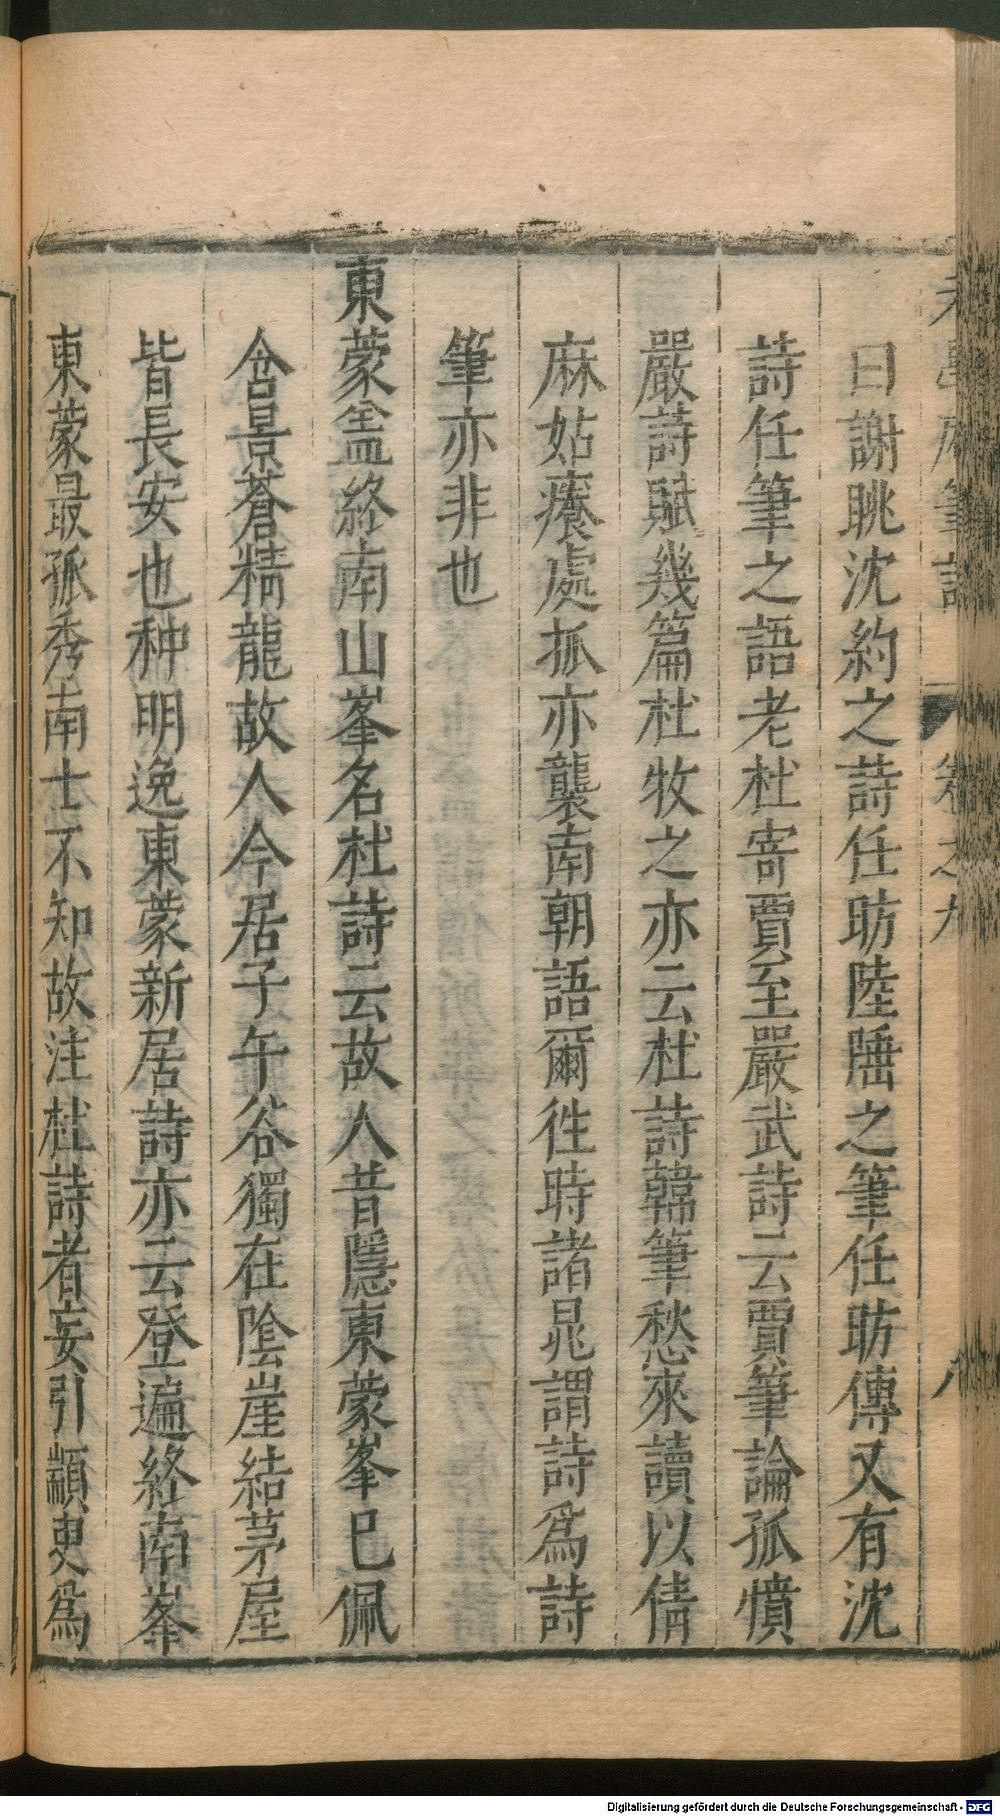 曰謝眺沈約之詩任昉陸陲之筆任昉傳又有沈
詩任筆之語老杜寄賈至嚴武詩云賈筆論孤憤
嚴詩賦幾篇杜牧之亦云杜詩韓筆愁來讀以倩
麻姑癢處抓亦襲南朝語爾徃時諸晁謂詩爲詩
筆亦非也
東蒙盖終南山峯名杜詩云故人昔隱東蒙峯巳佩
含景蒼精龍故人今居子午谷獨在陰崖結茅屋
皆長安也种明逸東蒙新居詩亦云登遍終南峯
東蒙最孤秀南士不知故注杜詩者妄引顓臾爲
卷之九
八
Digitalisierung gefördert durch die Deutsche Forschungsgemeinschaft - DFG